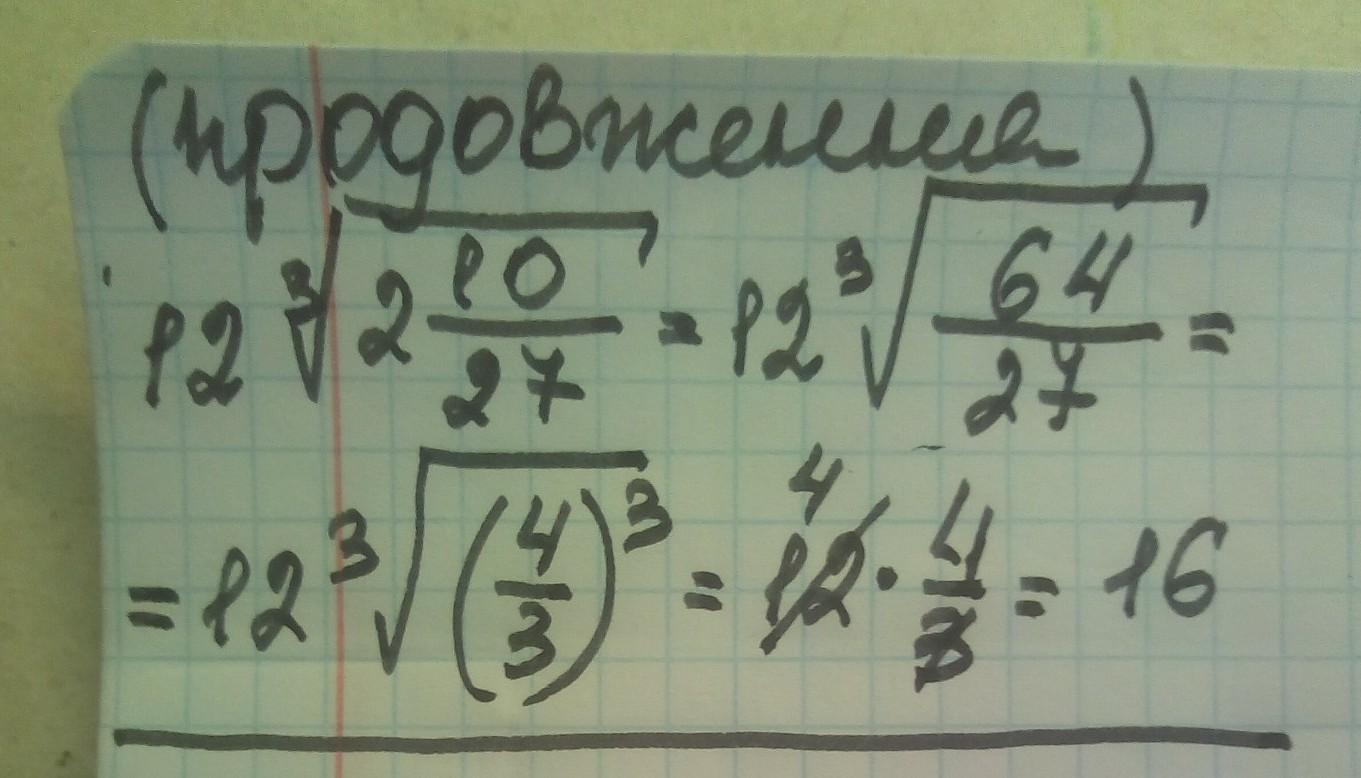 (продовження)
12 ∛(2 10/27) = 12 ∛(64/27) =
= 12 ∛((4/3)³) = 4 12 · 4/3 = 16